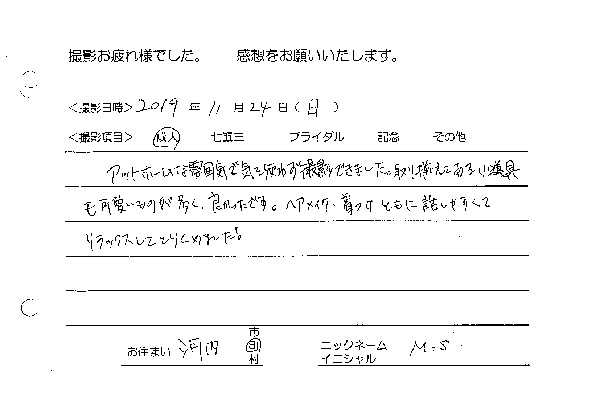 撮影お疲れ様でした。　感想をお願いいたします。
<撮影日時> 2019 年 11 月 24 日 (日)
<撮影項目> 成人 七五三 ブライダル 記念 その他
アットホームな雰囲気で気を使わず撮影できました。取り揃えてある小道具
も可愛いものが多く、良かったです。ヘアメイク、着つけ ともに話しやすくて
リラックスしてとりくめました!
お住まい 河内 市 町 村
ニックネーム イニシャル M.S